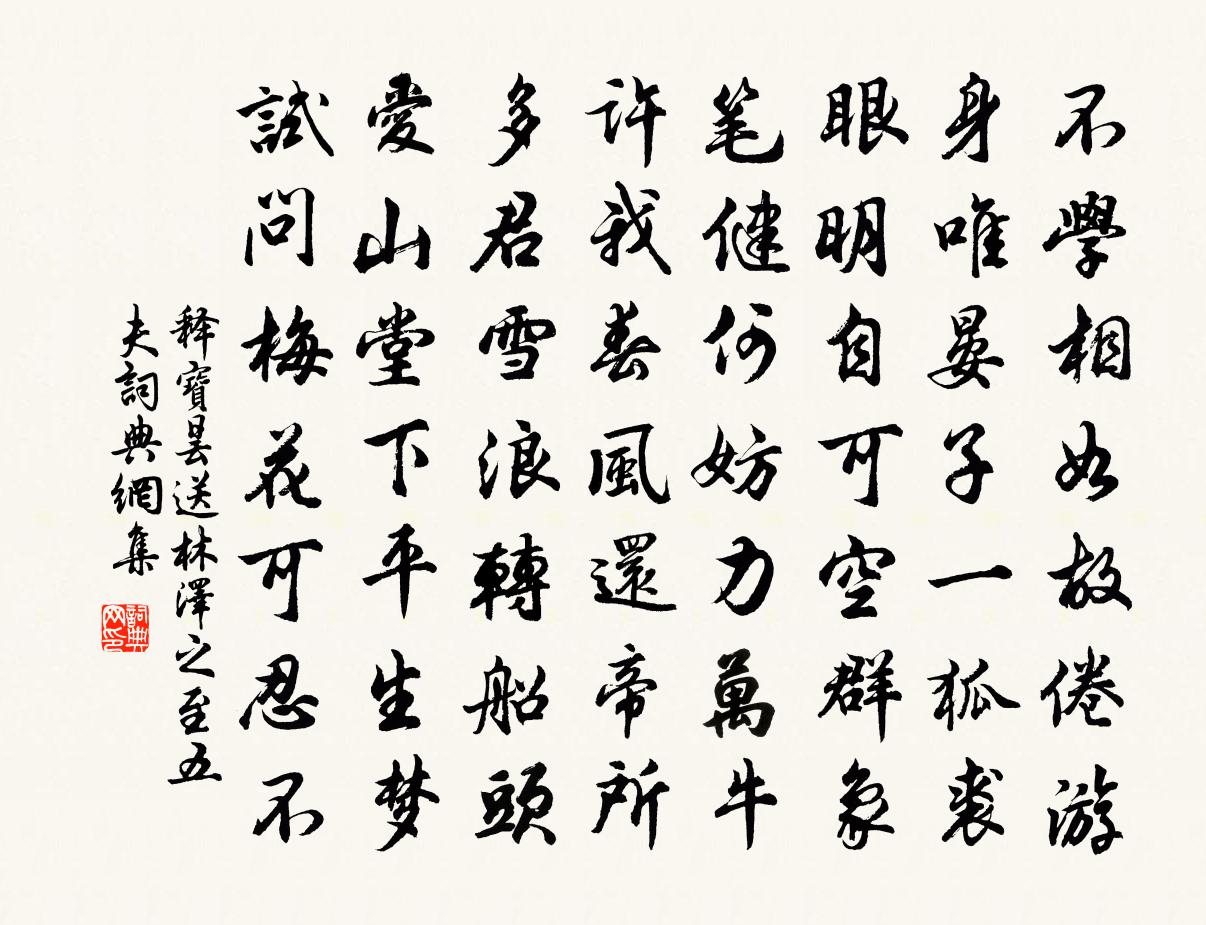 不學相如故倦游
身唯晏子一狐裘
眼明自可空群象
笔健何妨力萬牛
許我春風還帝所
多君雪浪轉船頭
愛山堂下平生梦
試問梅花可忍不
释寶昙送林澤之至五
夫詞典網集
詞典
网印